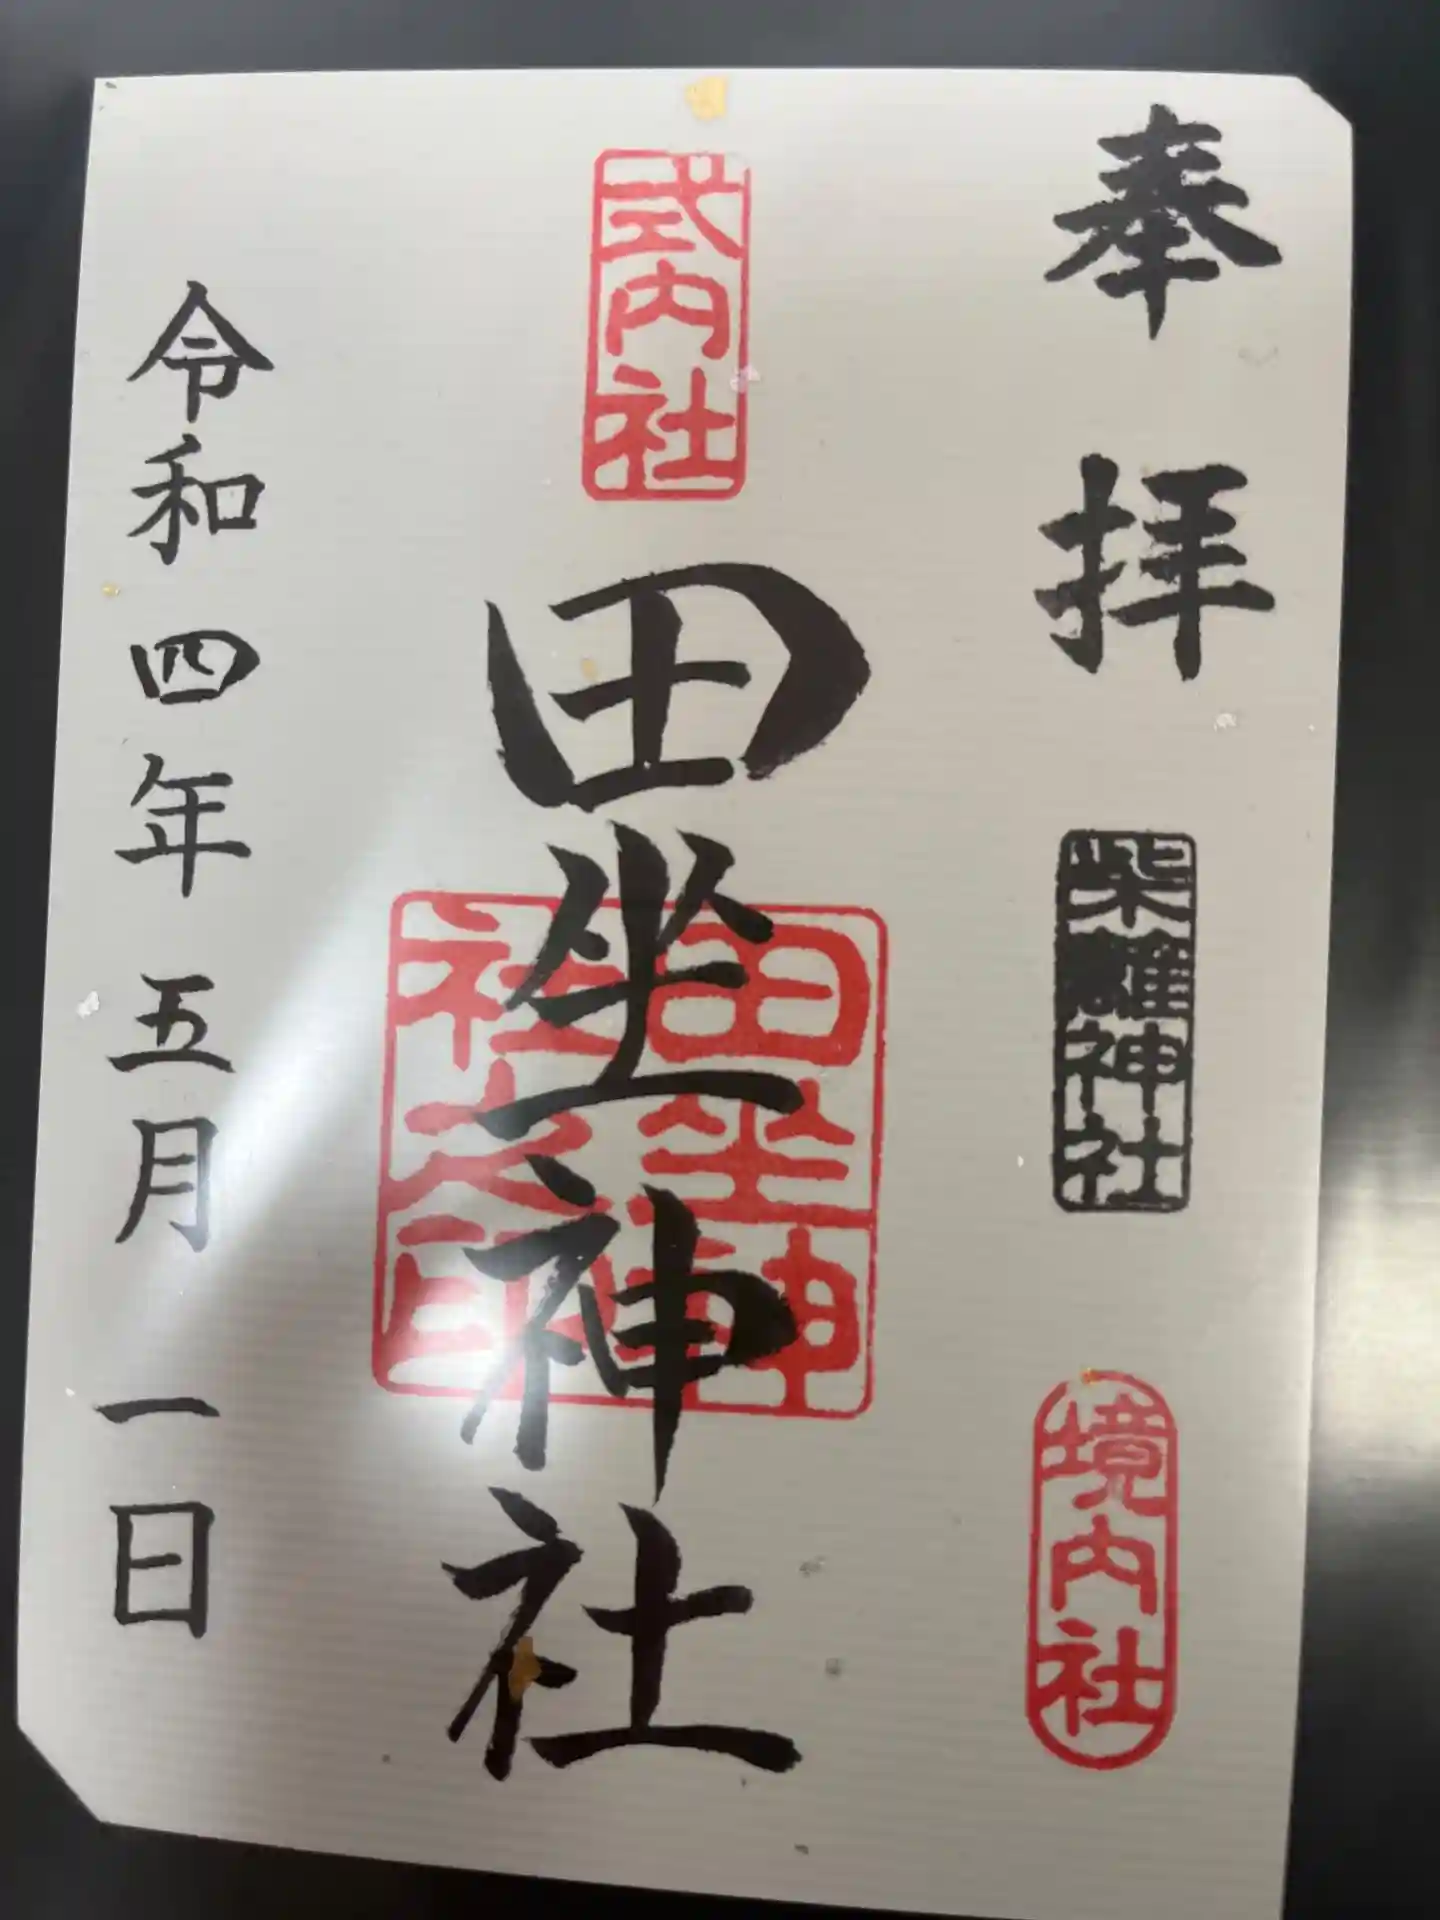 奉拝
柴離神社
境内社
式内社
田坐神社
田坐神
社之印
令和四年五月一日